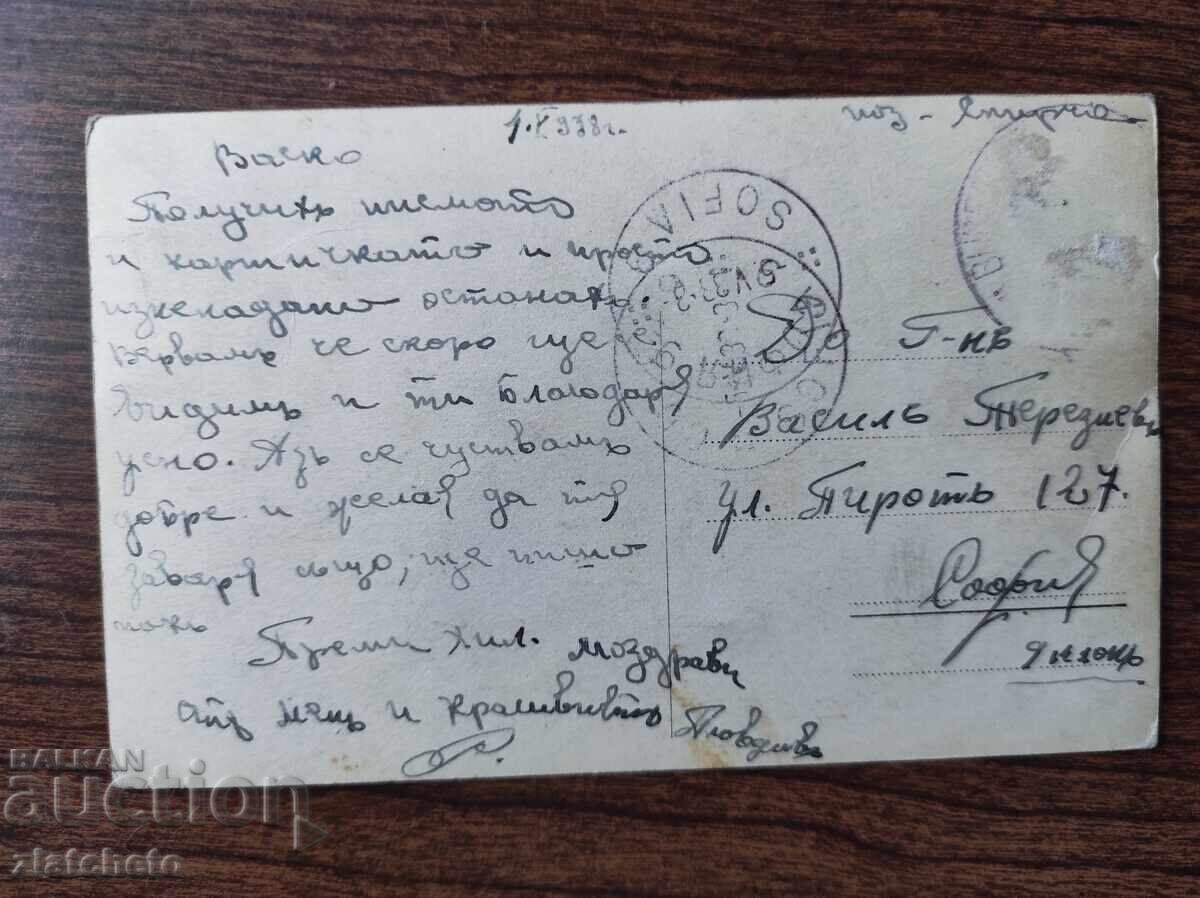 1.X 938г.
Васко
Получихъ писмото
и картичката и просто
изненадано останахъ.
Вервамъ че скоро ще се
видимъ и ти благодаря
усно. Азъ се чуствамъ
добре и желая да тя
заваря също, ще пиша
пакъ
Преми хил. поздрави
отъ менъ и красивиятъ
Пловдивъ
SOFIA
До Г-нъ
Василъ Терзиевъ
ул. Пиротъ 127.
София
BALKAN
auction
zlatcheto